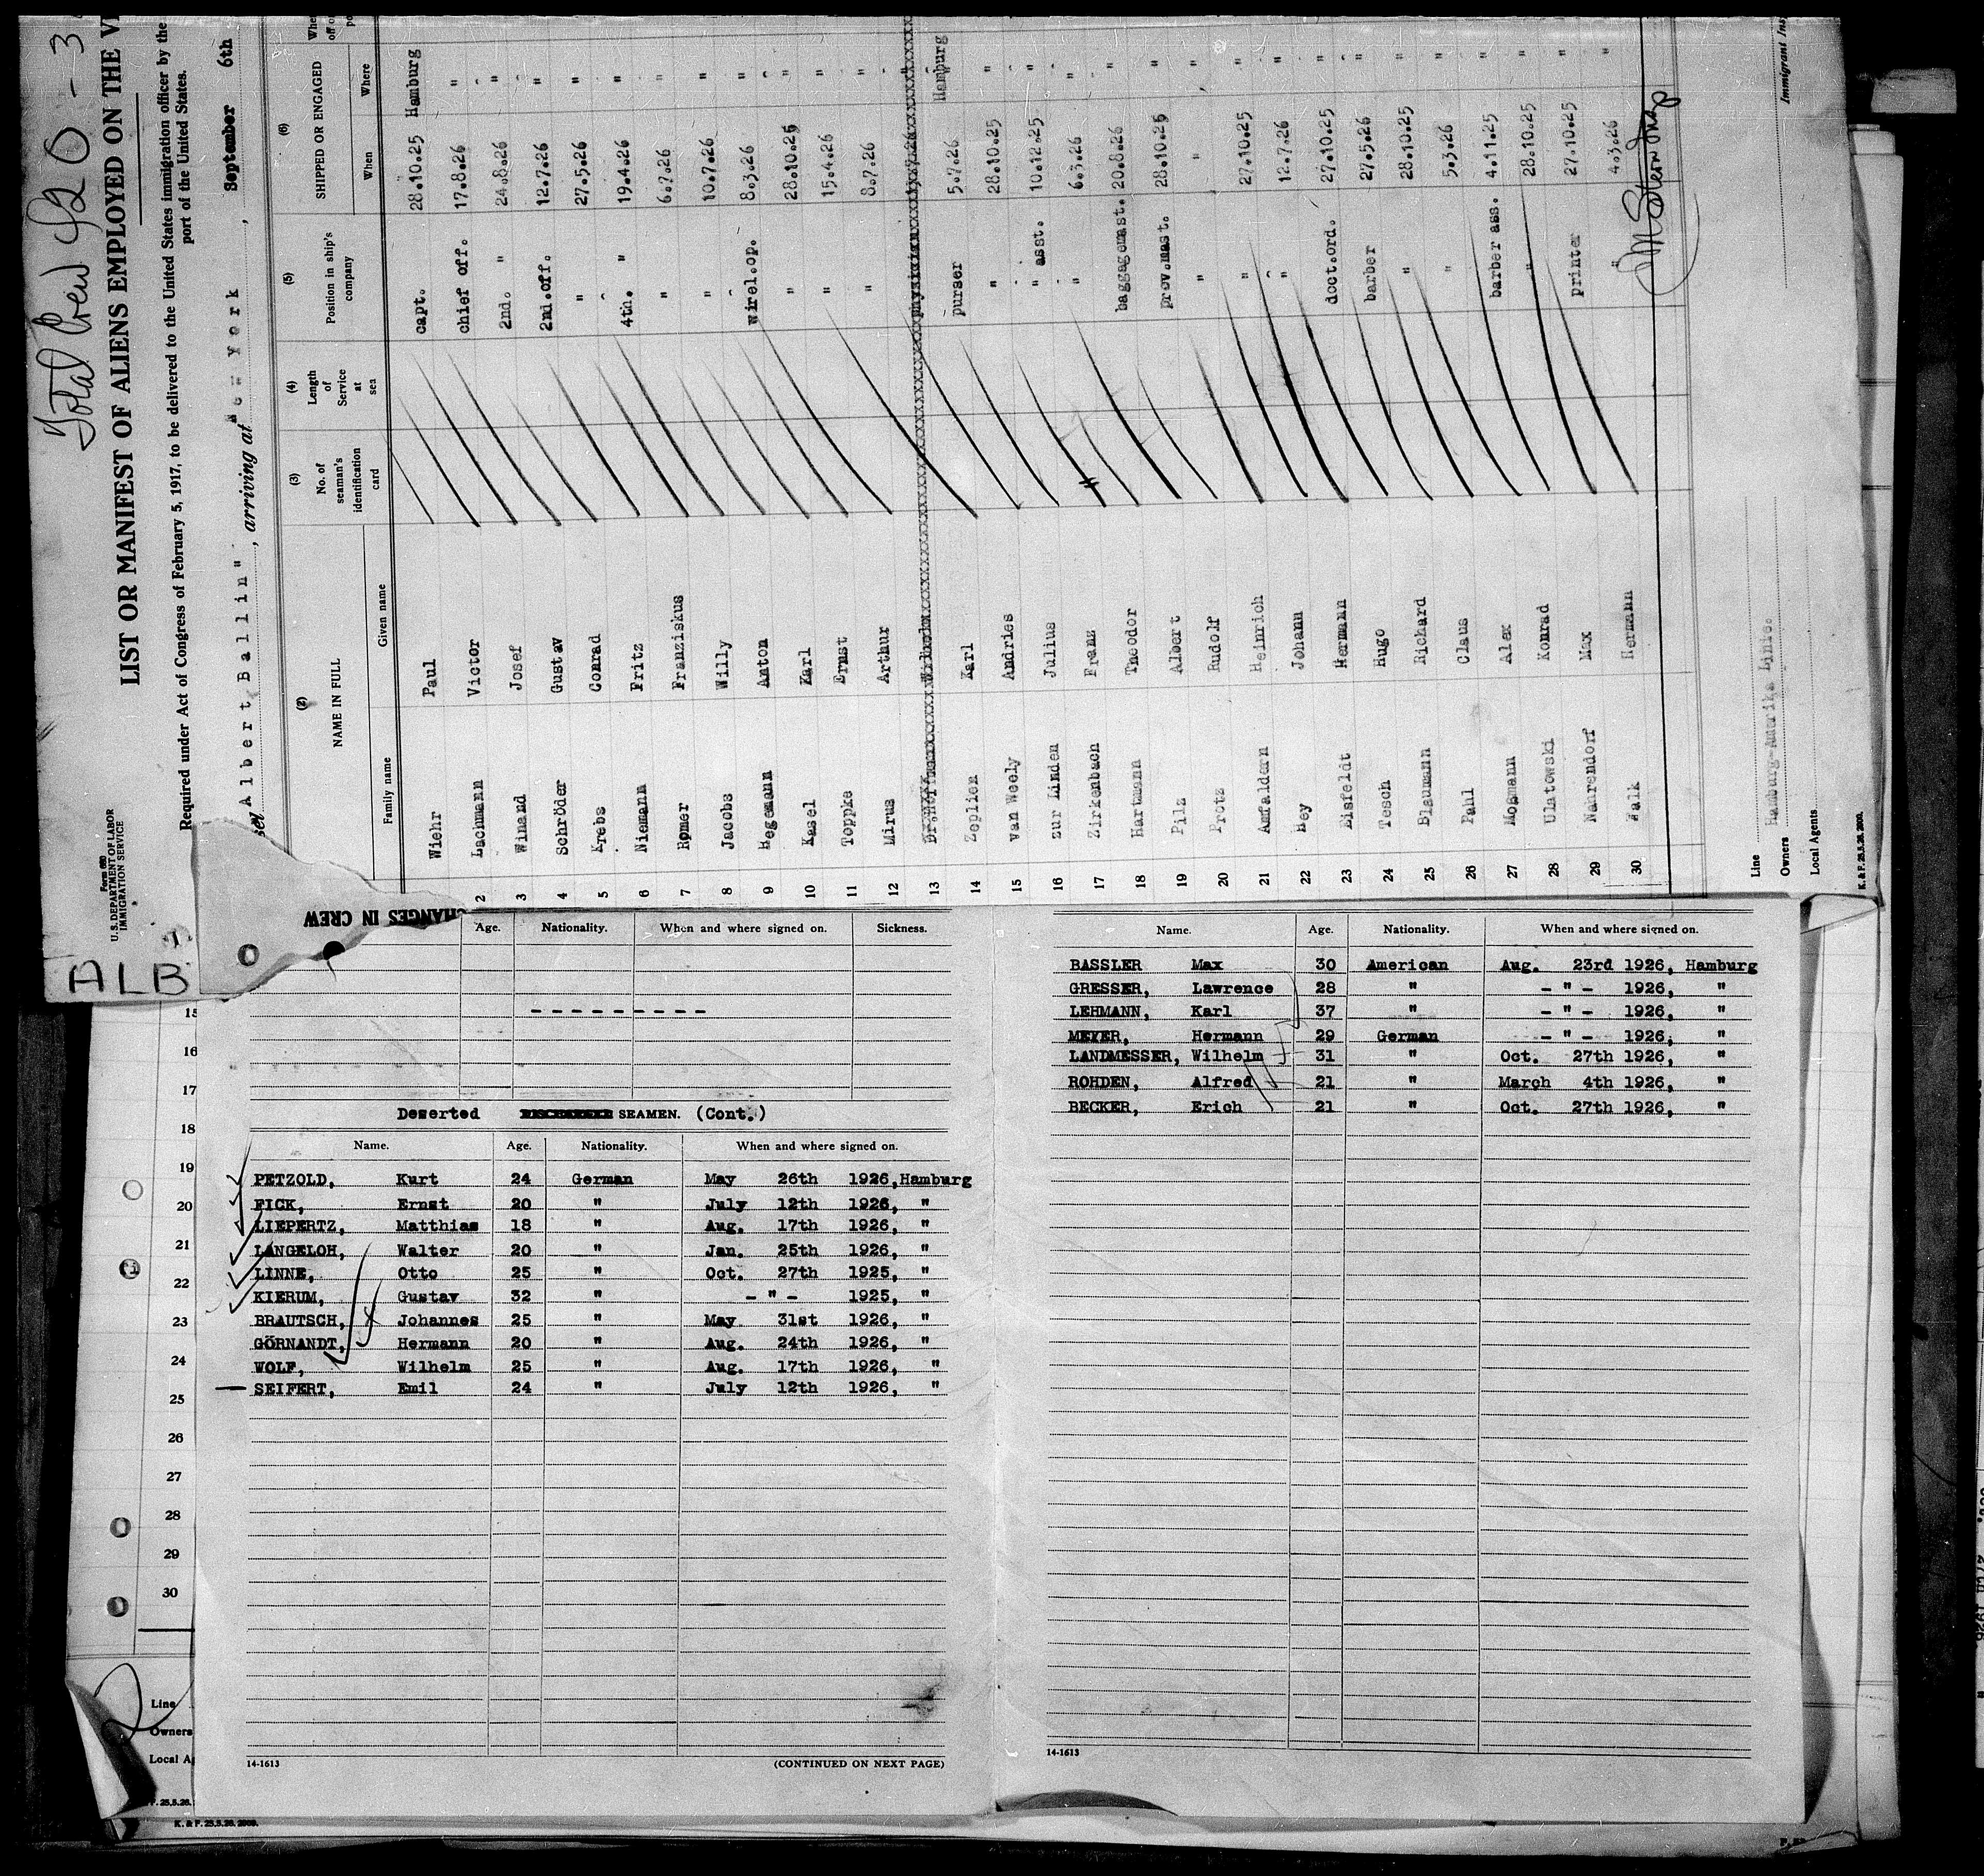 Total Crew 420 - 3
Form 680
U. S. DEPARTMENT OF LABOR
IMMIGRATION SERVICE
LIST OR MANIFEST OF ALIENS EMPLOYED ON THE
Required under Act of Congress of February 5, 1917, to be delivered to the United States immigration officer by the
port of the United States.
Albert Ballin", arriving at New York, September 6th
(2) (3) (4) (5) (6)
NAME IN FULL No. of seaman's identification card Length of Service at sea Position in ship's company SHIPPED OR ENGAGED
Family name Given name When Where
Wiehr Paul capt. 28.10.25 Hamburg
2 Lachmann Victor chief off. 17.8.26 "
3 Winand Josef 2nd. " 24.8.26 "
4 Schröder Gustav 2nd.off. 12.7.26 "
5 Krebs Conrad " 27.5.26 "
6 Niemann Fritz 4th. " 19.4.26 "
7 Römer Franziskus " 6.7.26 "
8 Jacobs Willy " 10.7.26 "
9 Hegemann Anton wirel.op. 8.3.26 "
10 Kasel Karl " 28.10.25 "
11 Toppke Ernst " 15.4.26 "
12 Mirus Arthur " 8.7.26 "
13
14 Zeplien Karl purser 5.7.26 Hamburg
15 van Weely Andries " 28.10.25 "
16 zur Linden Julius " asst. 10.12.25 "
17 Zirkenbach Franz " 6.3.26 "
18 Hartmann Theodor baggagemast. 20.8.26 "
19 Pilz Albert prov.mast. 28.10.25 "
20 Protz Rudolf " " "
21 Amfaldern Heinrich " 27.10.25 "
22 Hey Johann " 12.7.26 "
23 Eisfeldt Hermann doct.ord. 27.10.25 "
24 Tesch Hugo barber 27.5.26 "
25 Blaumann Richard " 28.10.25 "
26 Pahl Claus " 5.3.26 "
27 Mogmann Alex barber ass. 4.11.25 "
28 Ulatowski Konrad " 28.10.25 "
29 Nahrendorf Max printer 27.10.25 "
30 Walk Hermann " 4.3.26 "
Immigrant Ins
Line Hamburg-Amerika Linie.
Owners
Local Agents
K. & P. 25.5.26. 2000.
ALB
CHANGES IN CREW
Age. Nationality. When and where signed on. Sickness.
---------
Deserted SEAMEN. (Cont.)
Name. Age. Nationality. When and where signed on.
PETZOLD, Kurt 24 German May 26th 1926, Hamburg
FICK, Ernst 20 " July 12th 1926, "
LIEPERTZ, Matthias 18 " Aug. 17th 1926, "
LANGELOH, Walter 20 " Jan. 25th 1926, "
LINNE, Otto 25 " Oct. 27th 1925, "
KIERUM, Gustav 32 " - " - 1925, "
BRAUTSCH, Johannes 25 " May 31st 1926, "
GÖRNANDT, Hermann 20 " Aug. 24th 1926, "
WOLF, Wilhelm 25 " Aug. 17th 1926, "
SEIFERT, Emil 24 " July 12th 1926, "
14-1613 (CONTINUED ON NEXT PAGE)
Name. Age. Nationality. When and where signed on.
BASSLER Max 30 American Aug. 23rd 1926, Hamburg
GRESSER, Lawrence 28 " - " - 1926, "
LEHMANN, Karl 37 " - " - 1926, "
MEYER, Hermann 29 German - " - 1926, "
LANDMESSER, Wilhelm 31 " Oct. 27th 1926, "
ROHDEN, Alfred 21 " March 4th 1926, "
BECKER, Erich 21 " Oct. 27th 1926, "
14-1613
15
16
17
18
19
20
21
22
23
24
25
26
27
28
29
30
Line
Owners
Local A
P. 25.5.26.
K. & P. 25.5.26. 2000.